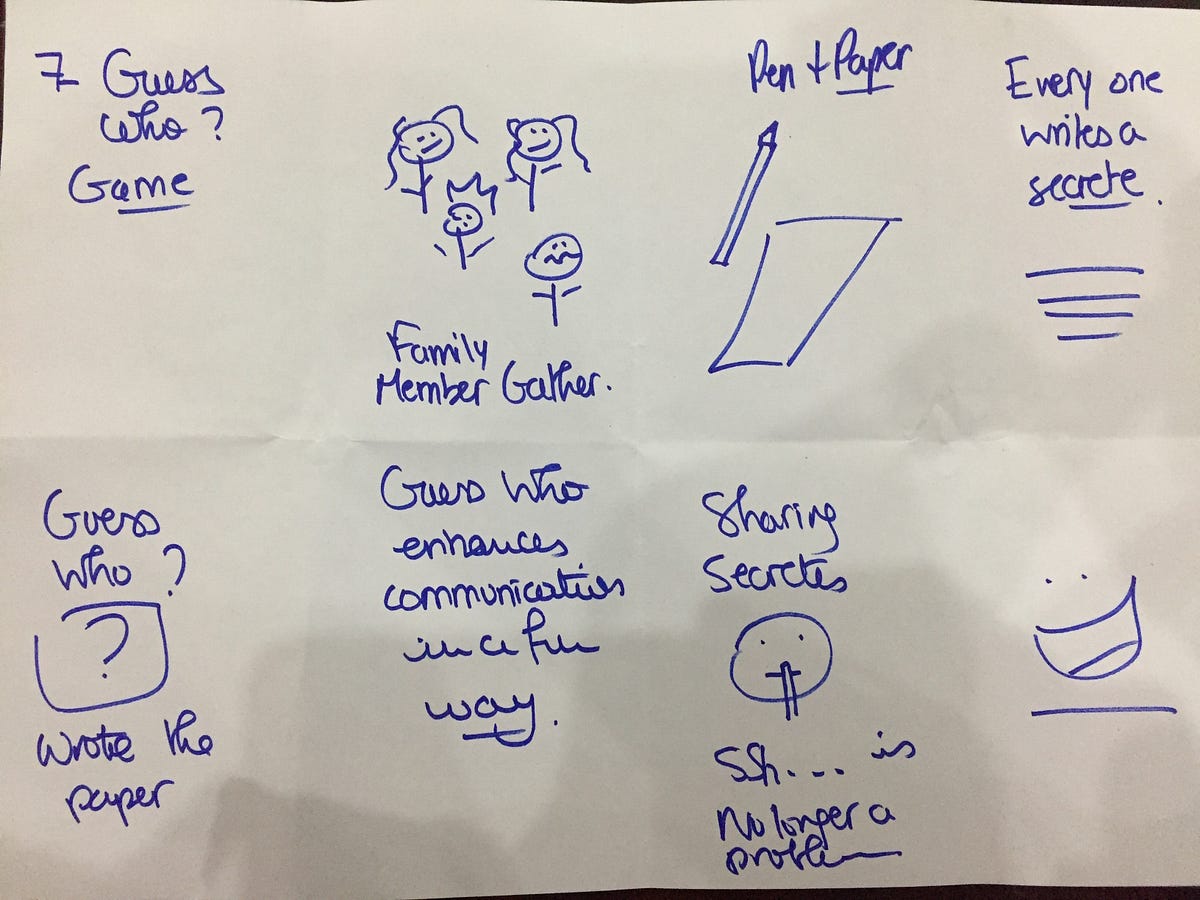 7 Guess
Who?
Game
Family
Member Gather.
Pen + Paper
Every one
writes a
secrete.
Guess
Who?
?
Wrote the
paper
Guess Who
enhances
communication
in a fun
way.
Sharing
Secretes
Ssh... is
No longer a
problem